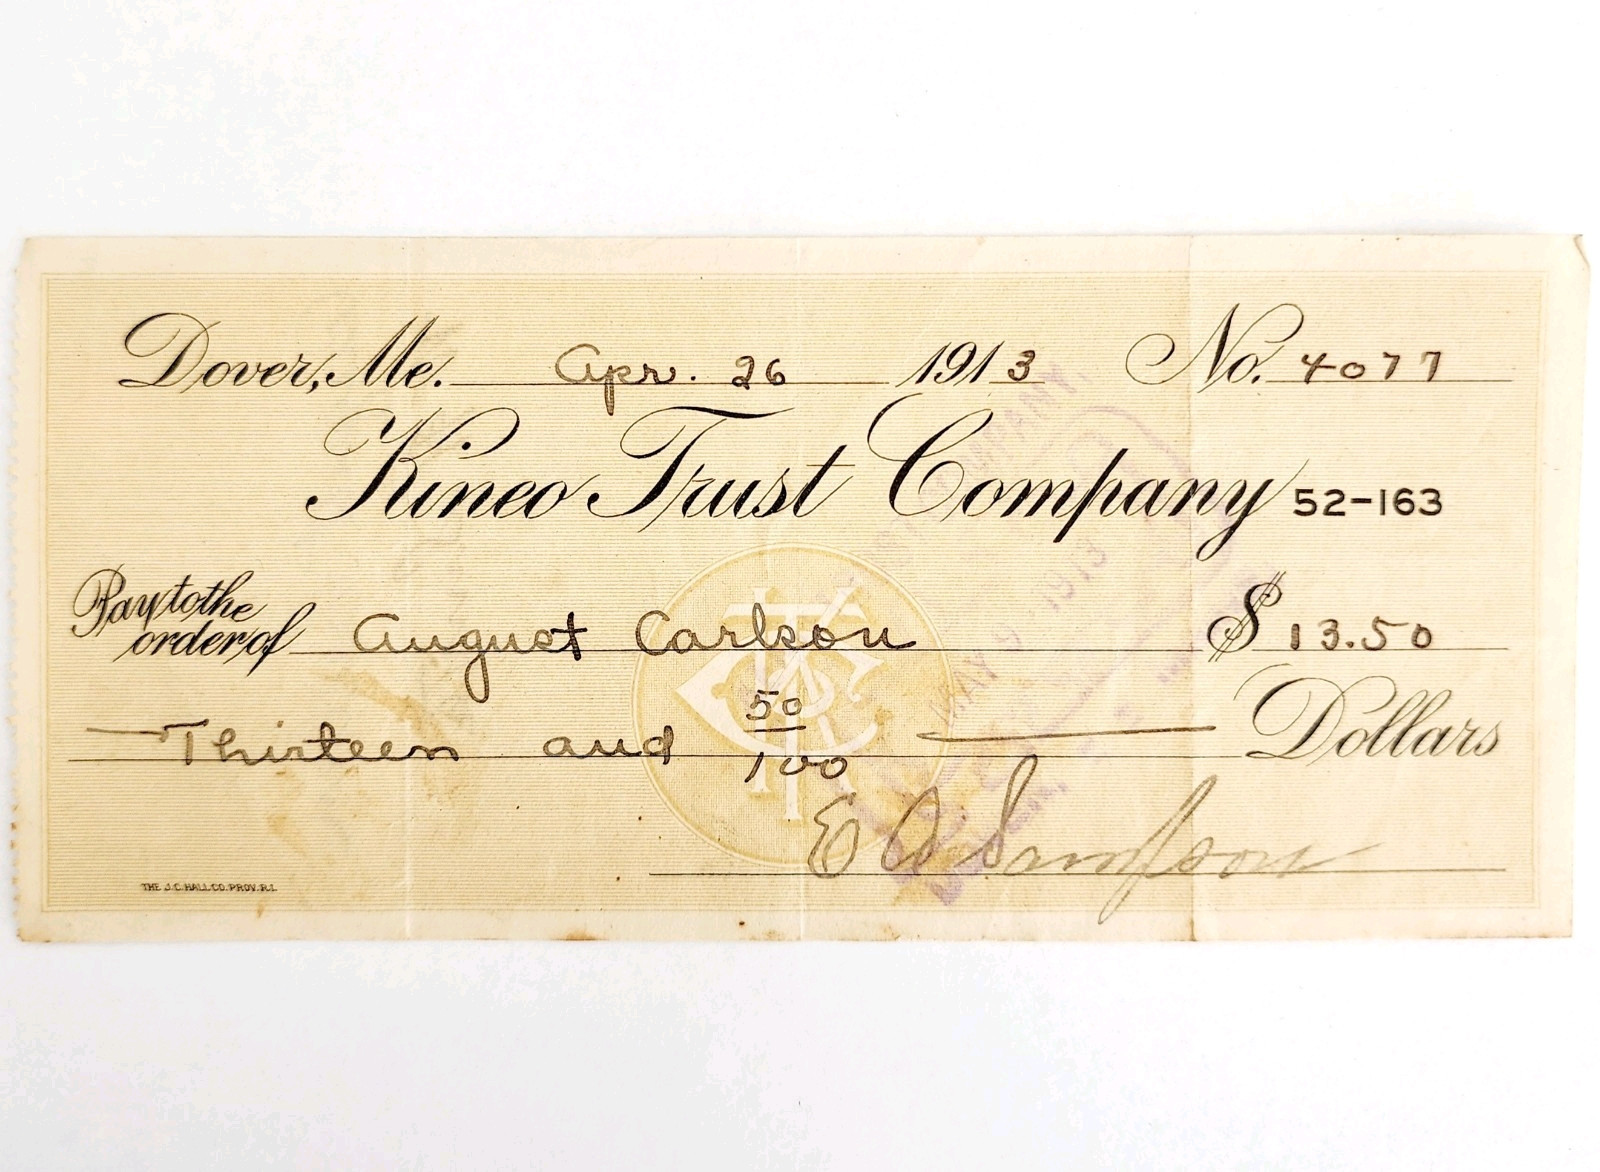 Dover, Me. Apr. 26 1913 No. 4077
Kineo Trust Company 52-163
Pay to the
order of August Carlson $ 13.50
Thirteen and 50/100 Dollars
E A Sampson
THE J.C. HALL CO. PROV. R.I.
COMPANY
MAY 9 1913